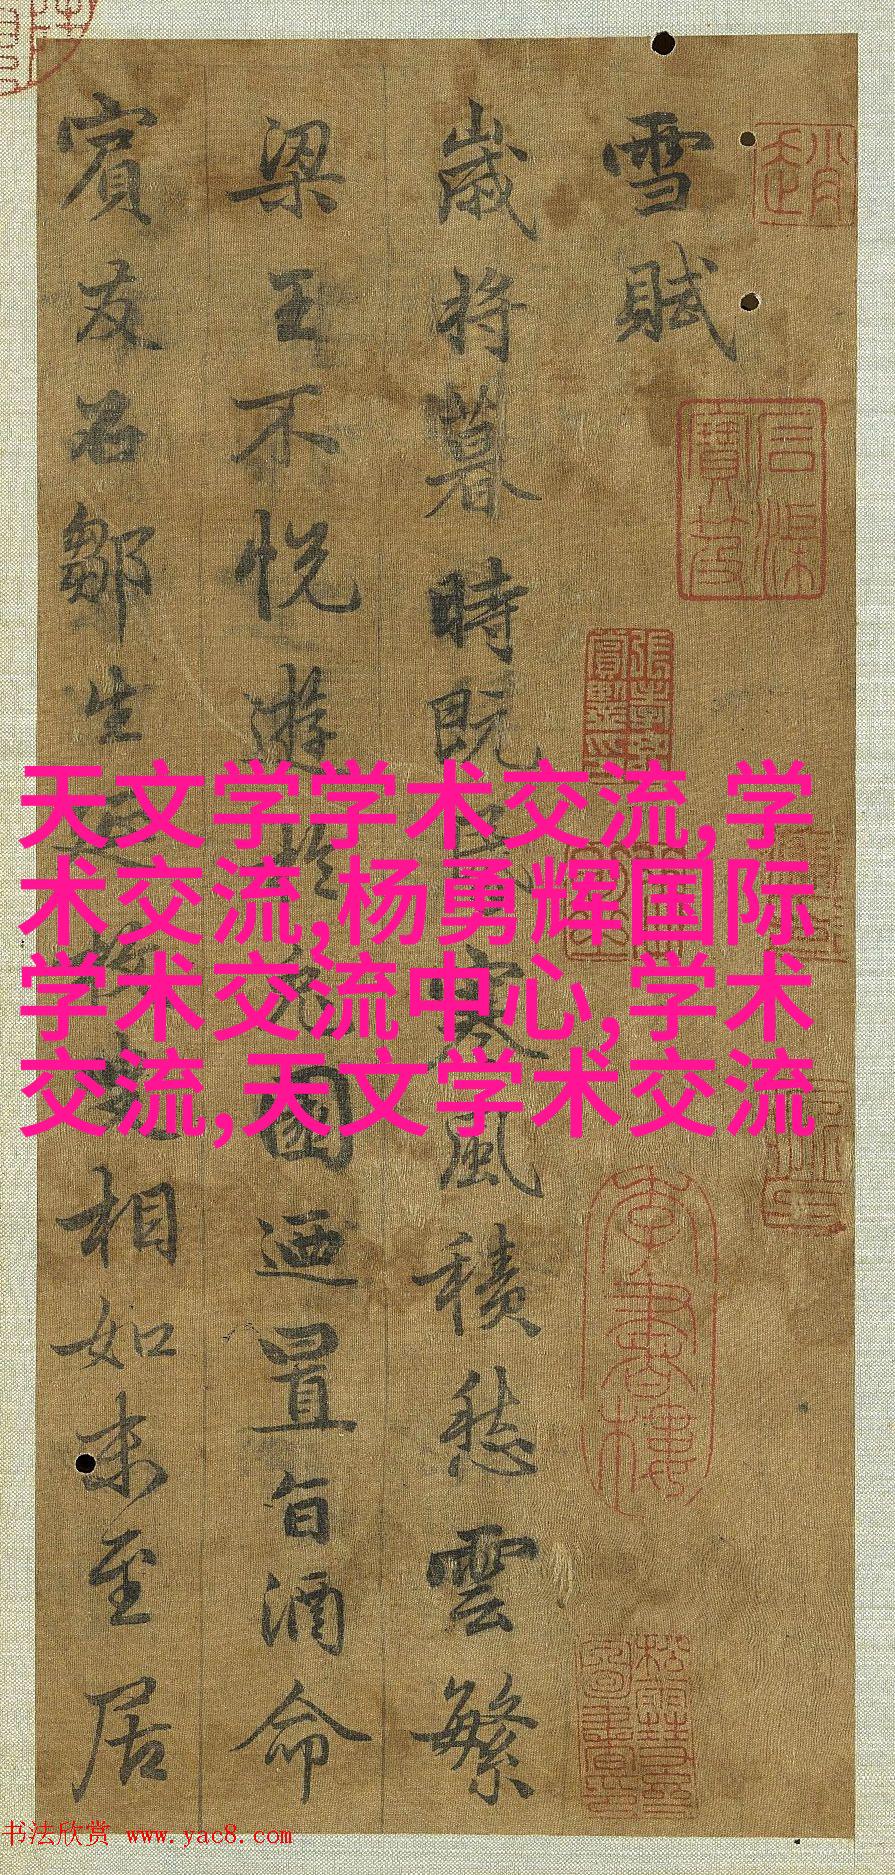 雪賦
歲將暮時既昏寒風積愁雲繁
梁王不悅遊於兔園迺置旨酒命
賓友召鄒生延枚叟相如未至居
天文学学术交流,学
术交流,杨勇辉国际
学术交流中心,学术
交流,天文学术交流
书法欣赏 www.yac8.com